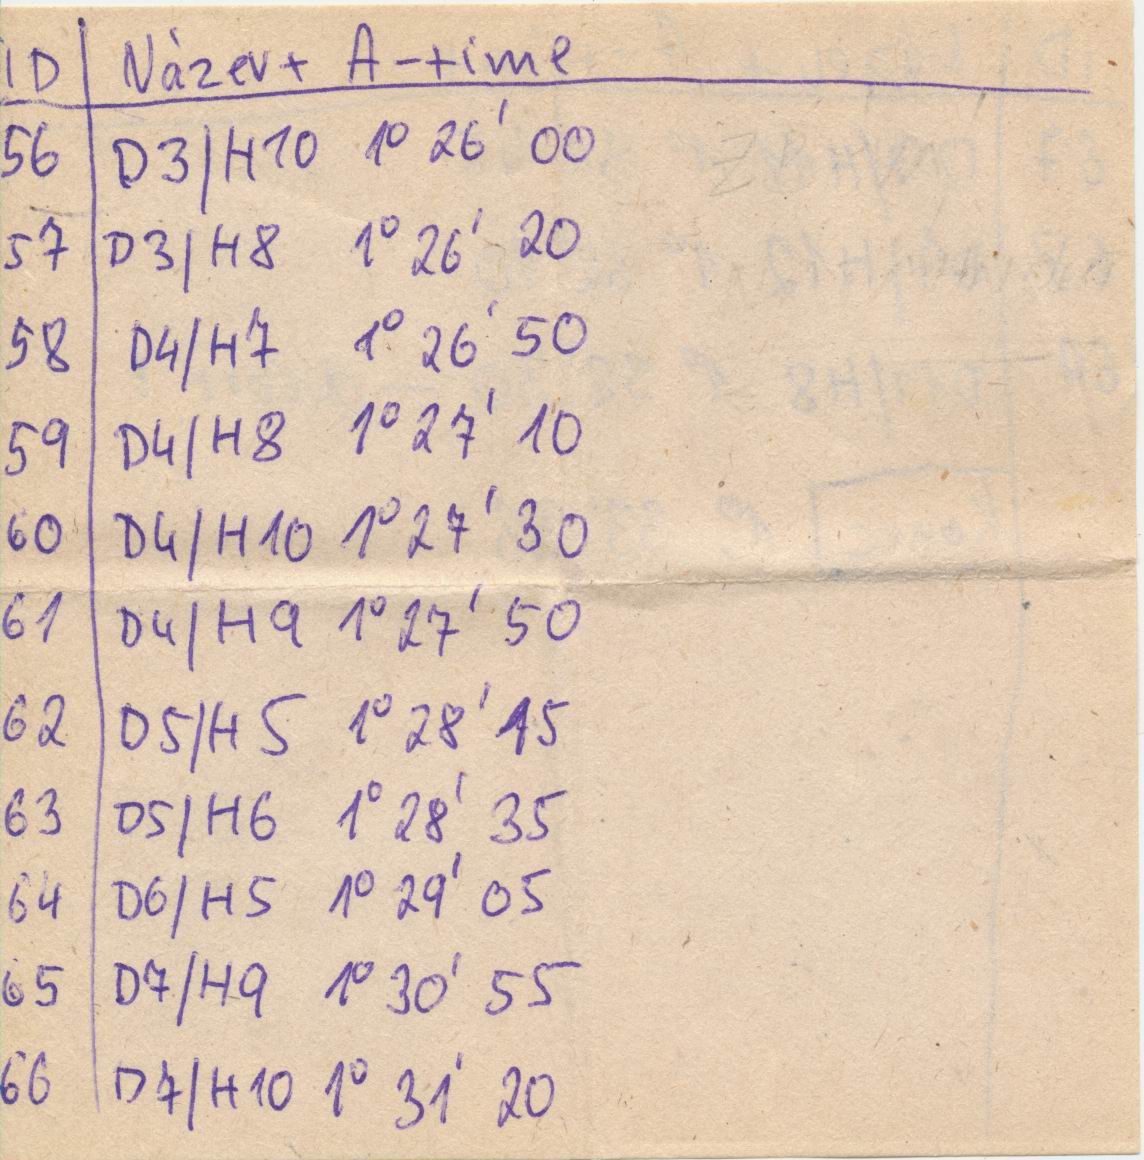 ID Název+ A-time
56 D3/H10 1° 26' 00
57 D3/H8 1° 26' 20
58 D4/H7 1° 26' 50
59 D4/H8 1° 27' 10
60 D4/H10 1° 27' 30
61 D4/H9 1° 27' 50
62 D5/H5 1° 28' 15
63 D5/H6 1° 28' 35
64 D6/H5 1° 29' 05
65 D7/H9 1° 30' 55
66 D7/H10 1° 31' 20